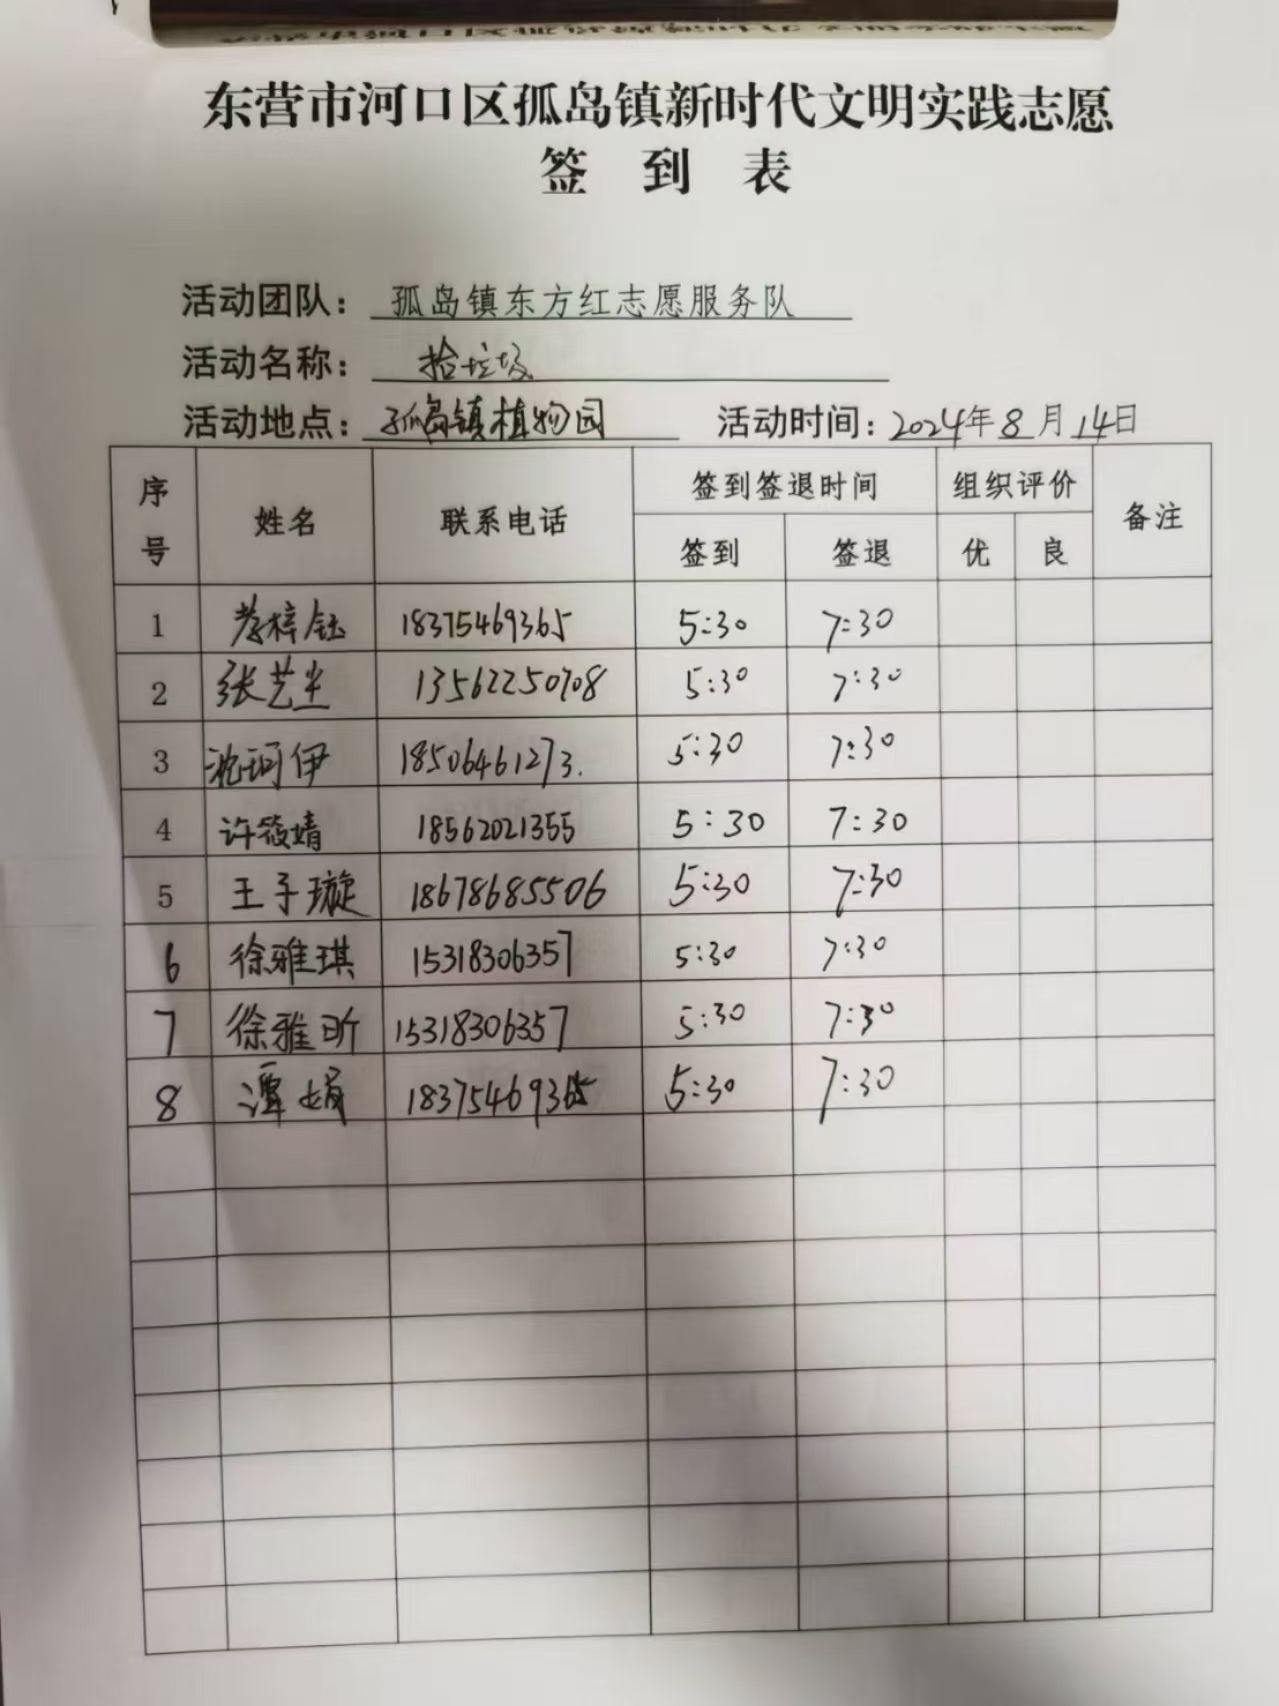 东营市河口区孤岛镇新时代文明实践志愿
签 到 表
活动团队：孤岛镇东方红志愿服务队
活动名称：拾垃圾
活动地点：孤岛镇植物园 活动时间：2024年8月14日
序号 姓名 联系电话 签到签退时间 组织评价 备注
签到 签退 优 良
1 梓钰 18375469365 5:30 7:30
2 张艺 13562250708 5:30 7:30
3 珂伊 18506461273. 5:30 7:30
4 许筱婧 18562021355 5:30 7:30
5 王子璇 18678685506 5:30 7:30
6 徐雅琪 15318306357 5:30 7:30
7 徐雅昕 15318306357 5:30 7:30
8 谭娟 18375469365 5:30 7:30